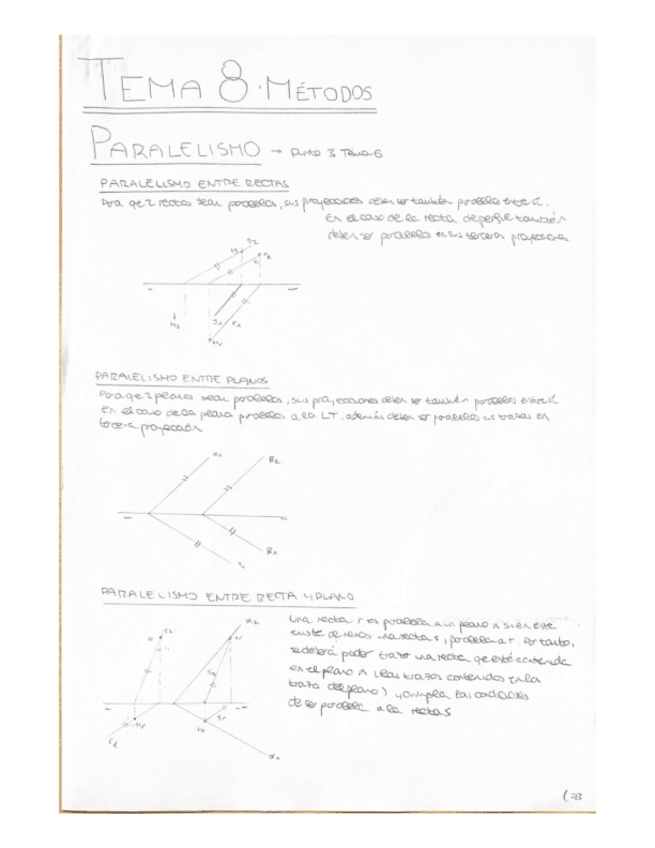 TEMA 8. MÉTODOS
PARALELISMO → PUNTO 3 TEMA 6
PARALELISMO ENTRE RECTAS
Para que 2 rectas sean paralelas, sus proyecciones deben ser también paralelas entre sí.
En el caso de la recta de perfil también
deben ser paralelas en sus terceras proyecciones
PARALELISMO ENTRE PLANOS
Para que 2 planos sean paralelos, sus proyecciones deben ser también paralelas entre sí
En el caso de planos paralelos a la LT, además deben ser paralelas sus trazas en
tercera proyección
PARALELISMO ENTRE RECTA Y PLANO
Una recta r es paralela a un plano si en este
existe al menos una recta s, paralela a r. Por tanto,
se deberá poder trazar una recta que esté contenida
en el plano (las trazas contenidas en la
traza del plano) y cumpla las condiciones
de ser paralela a la recta s
(73